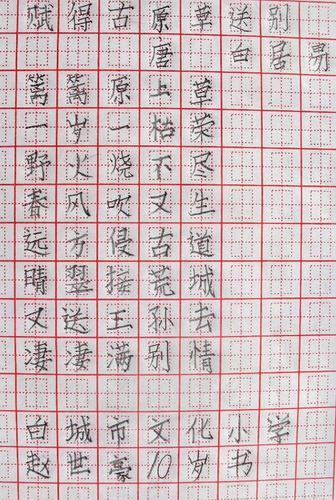 赋得古原草送别
唐 白居易
篱篱原上草
一岁一枯荣
野火烧不尽
春风吹又生
远方侵古道
晴翠接荒城
又送王孙去
凄凄满别情
台城市文化小学
赵世豪10岁书